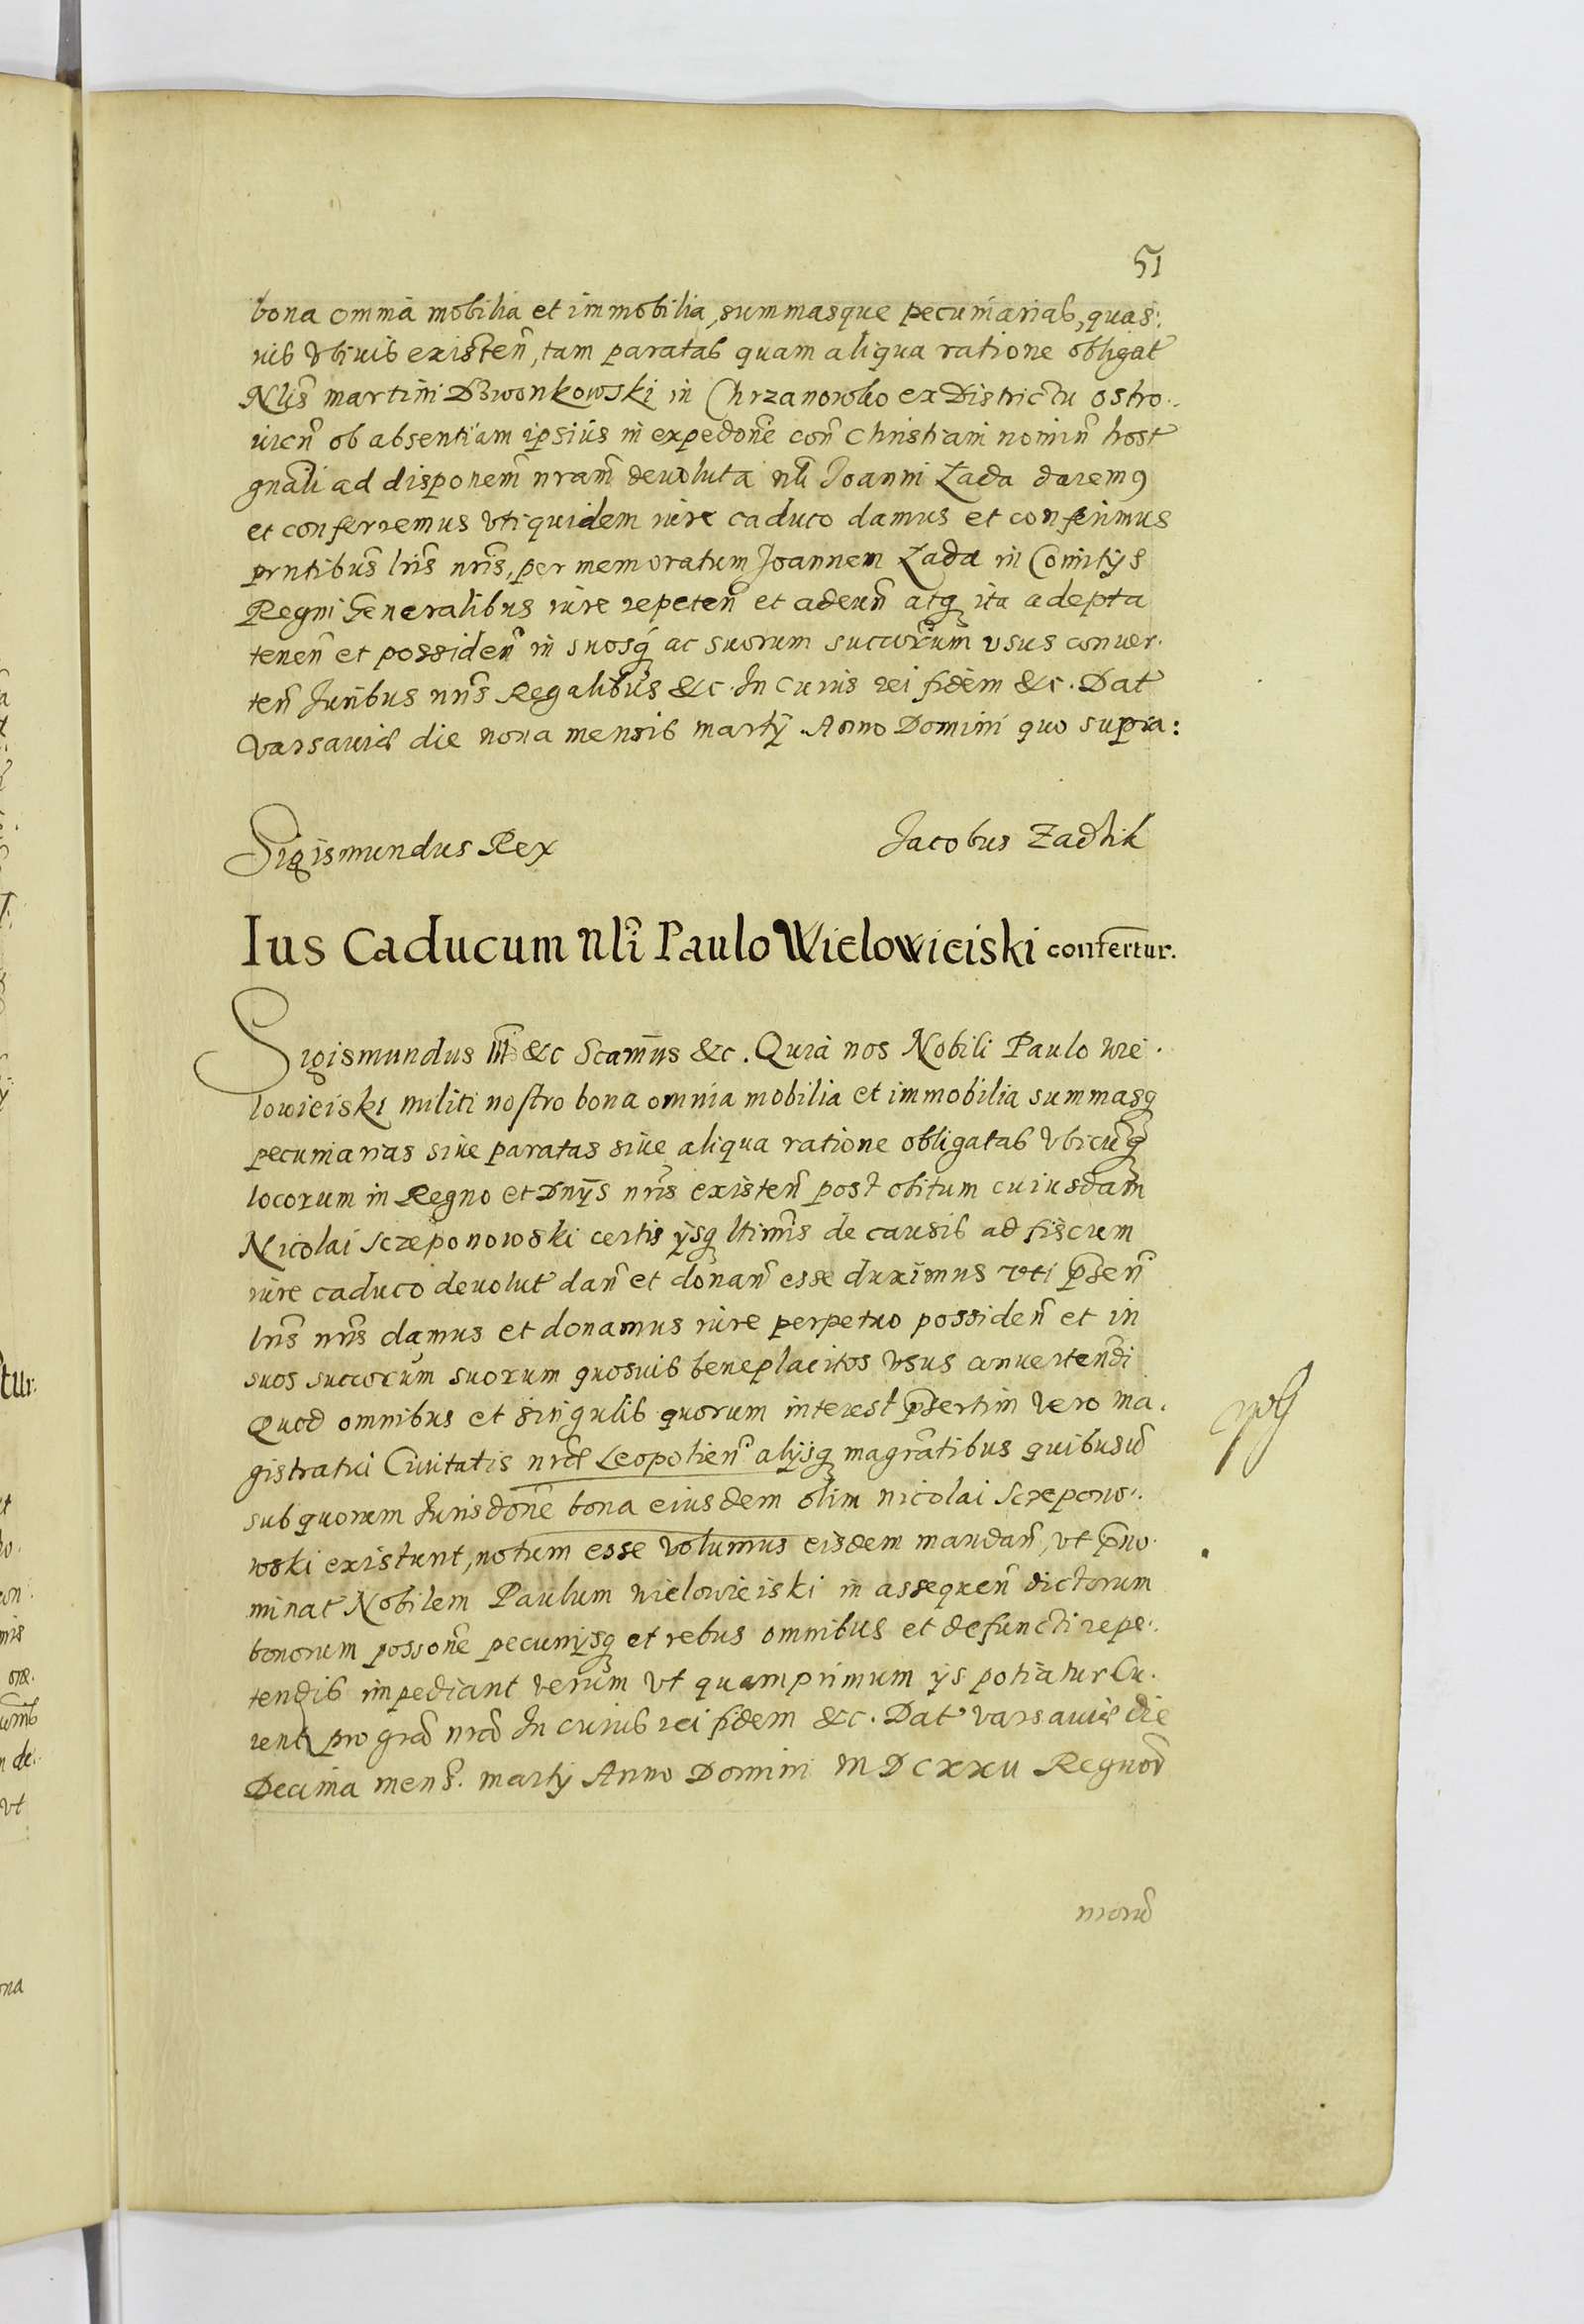 51
bona omnia mobilia et immobilia, summasque pecuniarias, quas:
uis vbiuis existeñ, tam paratas quam aliqua ratione obligat̃
Nlis̃ martini Dzwonkowski in Chrzanowko ex Districtu ostro:
uieñ ob absentiam ipsius in expedoñe coñ Christiani nomiñ host̃
gnãli ad disponem̃ nram̃ deuoluta nlĩ Joanni Łada daremꝯ
et conferremus vti quidem iure caduco damus et conferimus
prntibus̃ lrĩs nrĩs, per memoratum Joannem Łada in Comitijs
Regni Generalibus iure repeteñ et adeuñ atq̃ ita adepta
teneñ et possideñ in suosq́ ac suorum succorũm vsus conuer.
teñ Juribus nrĩs Regalibus &c. In cuius rei fidem &c. Dat̃
Varsauiæ die nona mensis martij. Anno Domini quo supra:
Sigismundus Rex
Jacobus Zadzik
Ius Caducum Nlĩ Paulo Wielowieiski confertur.
Sigismundus III &c Scam̃us &c. Quia nos Nobili Paulo wie.
lowieiski militi nostro bona omnia mobilia et immobilia summasq̃
pecuniarias siue paratas siue aliqua ratione obligatas vbicũq̃
locorum in Regno et Dnijs̃ nrĩs existeñ post obitum cuiusdam
Nicolai Sczeponowski certis ijsq̃ ltimĩs de causis ad fiscum
iure caduco deuolut̃ dañ et donañ esse duximus vti p̃señ
lrĩs nrĩs damus et donamus iure perpetuo possideñ et in
suos succorũm suorum quosuis beneplacitos vsus conuertendi
Quod omnibus et singulis quorum interest p̃sertim vero ma.
gistratui Ciuitatis nræ̃ Leopolieñ alijsq̃ magrãtibus quibusuis̃
sub quorum Jurisdoñe bona eiusdem olim Nicolai Sczepono:
wski existunt, notum esse volumus eisdem mandañ, vt p̃no.
minat̃ Nobilem Paulum wielowieiski in assequeñ dictorum
bonorum possoñe pecunijsq̃ et rebus omnibus et defuncti repe:
tendis impediant verum vt quamprimum ijs potiatur Cu.
rent pro grã nrã In cuius rei fidem &c. Dat̃ Varsauiæ die
Decima mens̃. martij Anno Domini MDCXXV Regnoř
nrorũ